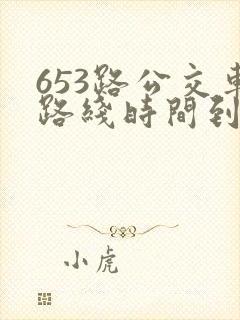 653路公交車
路綫時間到
小虎